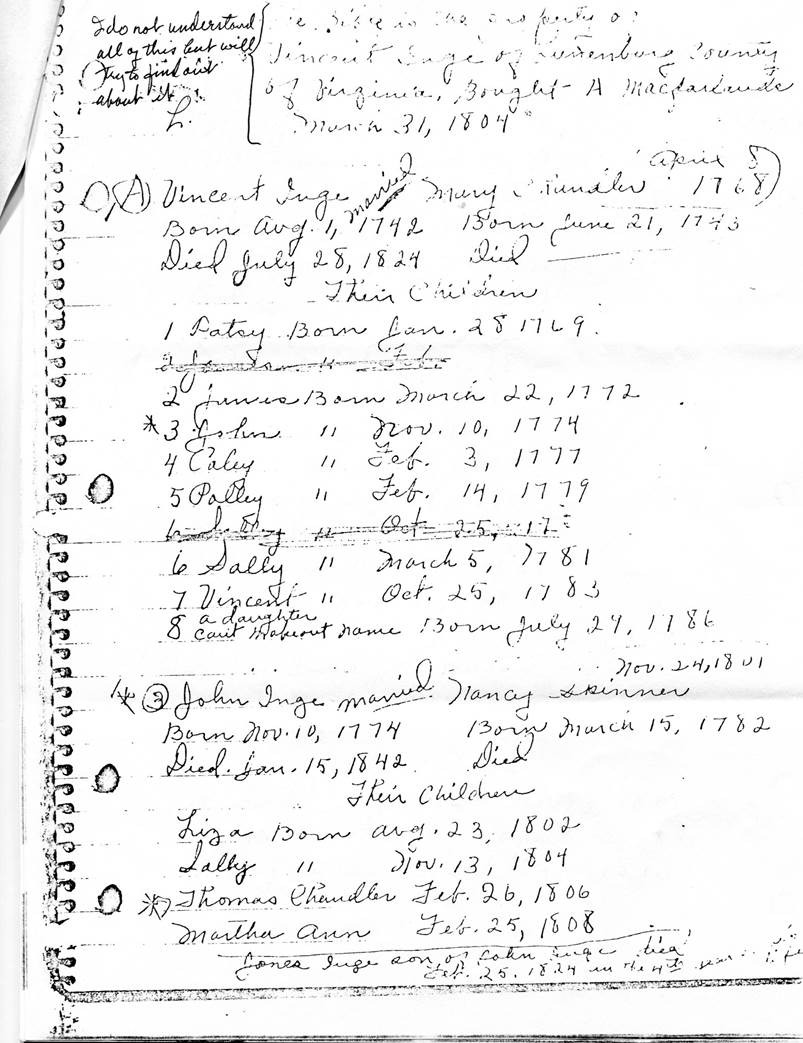 I do not understand
all of this but will
try to find out
about it.
L.
Bible is the property of
Vincent Inge of Lunenburg County
of Virginia, Bought A
March 31, 1804
April 8
(A) Vincent Inge married Mary 1768)
Born Aug. 1, 1742 Born June 21, 1743
Died July 28, 1824 Died
Their Children
1 Patsy Born Jan. 28 1769.
2 " Feb.
2 James Born March 22, 1772
* 3 John " Nov. 10, 1774
4 Caley " Feb. 3, 1777
5 Polley " Feb. 14, 1779
6 " Oct 25, 17
6 Sally " March 5, 1781
7 Vincent " Oct. 25, 1783
a daughter
8 cant makeout name Born July 29, 1786
Nov. 24, 1801
* (3) John Inge married Nancy Skinner
Born Nov. 10, 1774 Born March 15, 1782
Died. Jan. 15, 1842 Died
Their Children
Liza Born Aug. 23, 1802
Sally " Nov. 13, 1804
* Thomas Chandler Feb. 26, 1806
Martha Ann Feb. 25, 1808
Jones Inge son of John Inge died
Feb. 25, 1824 in the 4th year